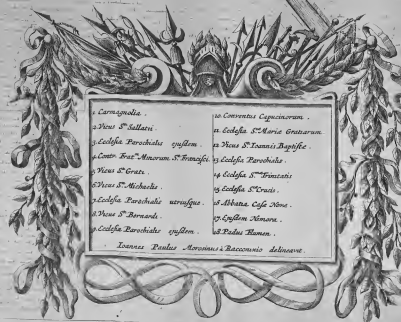 1 Carmagnolia.
2. Vicus Sti Sallatii.
3. Ecclesia Parochialis ejusdem.
4. Contr. Frat.m Minorum S.ti Francisci.
5. Vicus S.ti Grati.
6. Vicus S.ti Michaelis.
7. Ecclesia Parochialis utriusque.
8. Vicus S.ti Bernardi.
9. Ecclesia Parochialis ejusdem.
10. Conventus Capucinorum.
11. Ecclesia S.tæ Mariæ Gratiarum
12. Vicus S.ti Ioannis Baptistæ.
13 Ecclesia Parochialis.
14 Ecclesia S.mæ Trinitatis
15 Ecclesia S.tæ Crucis.
16 Abbatia Casæ Novæ.
17. Ejusdem Nemora.
18. Padus Flumen.
Ioannes Paulus Morosinus à Racconinio delineavit.